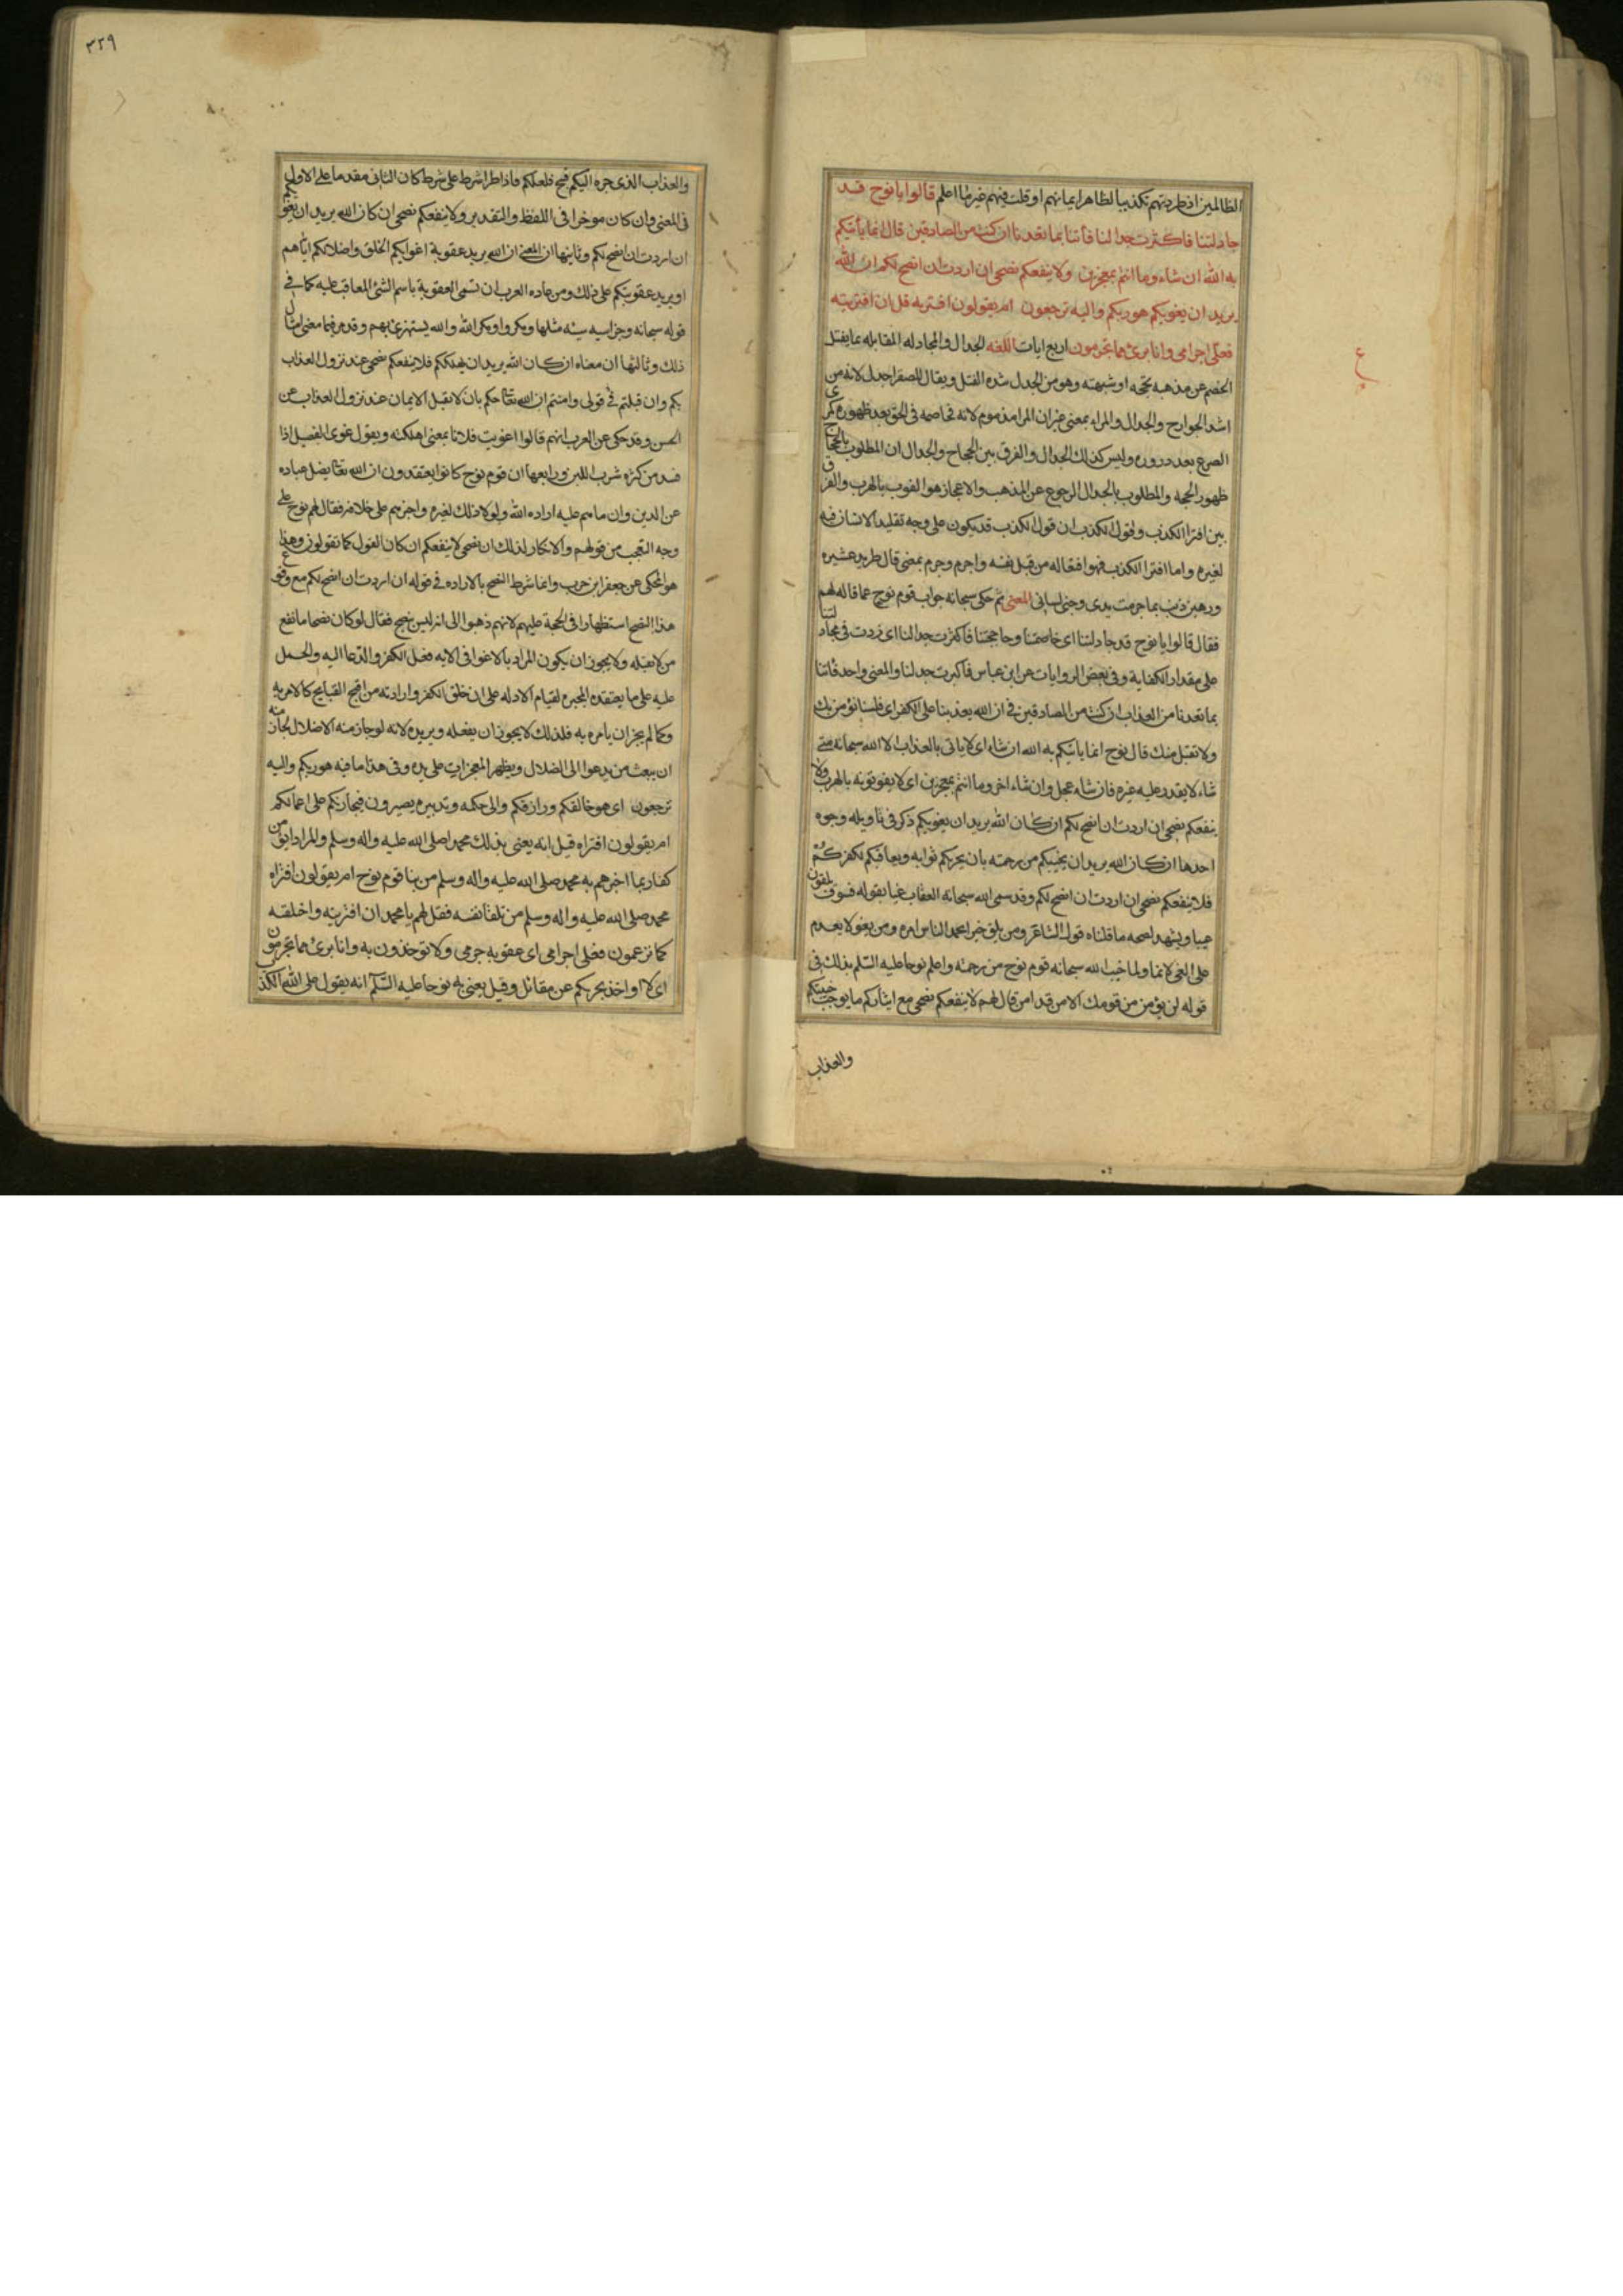 الظالمين ان طردتهم تكذيبا لظاهر ايمانهم او قلت فيهم غير ما اعلم قالوا يا نوح قد
جادلتنا فاكثرت جدالنا فأتنا بما تعدنا ان كنت من الصادقين قال انما يأتيكم
به الله ان شاء وما انتم بمعجزين ولا ينفعكم نصحي ان اردت ان انصح لكم ان كان الله
يريد ان يغويكم هو ربكم واليه ترجعون ام يقولون افتريه قل ان افتريته
فعلي اجرامي وانا برئ مما تجرمون اربع ايات اللغه الجدال والمجادله المقابله بما يفتل
الخصم عن مذهبه بحجه او شبهته وهو من الجدل شده الفتل ويقال للصقر اجدل لانه من
اشد الجوارح والجدال والمراء بمعنى غير ان المرا مذموم لانه مخاصمه في الحق بعد ظهوره كمرى
الضرع بعد دروره وليس كذلك الجدال والفرق بين الحجاج والجدال ان المطلوب بالحجاج
ظهور الحجه والمطلوب بالجدال الرجوع عن المذهب والاعجاز هو الفوت بالهرب والفرق
بين افترا الكذب وقول الكذب ان قول الكذب قد يكون على وجه تقليد الانسان فيه
لغيره واما افترا الكذب فهو افتعاله من قبل نفسه واجرم وجرم بمعنى قال طريد عشيره
ورهين ذنب بما جرمت يدي وجنى لساني المعنى ثم حكى سبحانه جواب قوم نوح عما قاله لهم
فقال قالوا يا نوح قد جادلتنا اي خاصمتنا وحاججتنا فاكثرت جدالنا اي زدت في مجادلتنا
على مقدار الكفاية وفي بعض الروايات عن ابن عباس فاكثرت جدلنا والمعنى واحد فأتنا
بما تعدنا من العذاب ان كنت من الصادقين في ان الله يعذبنا على الكفر اي فلسنا نؤمن بك
ولا نقبل منك قال نوح انما يأتيكم به الله ان شاء اي لا ياتي بالعذاب الا الله سبحانه متى
شاء لا يقدر عليه غيره فان شاء عجل وان شاء اخر وما انتم بمعجزين اي لا يفوتونه بالهرب ولا
ينفعكم نصحي ان اردت ان انصح لكم ان كان الله يريد ان يغويكم ذكر في تأويله وجوه
احدها ان كان الله يريد ان يخيبكم من رحمته بان يحرمكم ثوابه ويعاقبكم لكفركم
فلا ينفعكم نصحي ان اردت ان انصح لكم وقد سمى الله سبحانه العقاب غيا بقوله فسوف يلقون
غيا ويشهد لصحه ما قلناه قول الشاعر ومن يلق خيرا يحمد الناس امره ومن يغو لا يعدم
على الغي لائما ولما خيب الله سبحانه قوم نوح من رحمته واعلم نوحا عليه السلم بذلك في
قوله لن يؤمن من قومك الا من قد امن قال لهم لا ينفعكم نصحي مع ايثاركم ما يوجب خيبتكم
والعذاب
٣٢٩
والعذاب الذي جره اليكم قبيح فعلكم فاذا طرا شرط على شرط كان الثاني مقدما على الاول
في المعنى وان كان موخرا في اللفظ والتقدير ولا ينفعكم نصحي ان كان الله يريد ان يغويكم
ان اردت ان انصح لكم وثانيها ان المعنى ان الله يريد عقوبة اغوائكم الخلق واضلالكم اياهم
او يريد عقوبتكم على ذلك ومن عاده العرب ان تسمى العقوبة باسم الشئ المعاقب عليه كما في
قوله سبحانه وجزا سيئه سيئه مثلها ومكروا ومكر الله والله يستهزئ بهم وقد مر فيما معنى امثال
ذلك وثالثها ان معناه ان كان الله يريد ان يهلككم فلا ينفعكم نصحي عند نزول العذاب
بكم وان قبلتم في قولي وامنتم ان الله تعالى حكم بان لا يقبل الايمان عند نزول العذاب عن
الحسن وقد حكى عن العرب انهم قالوا اغويت فلانا بمعنى اهلكته ويقول غوى الفصيل اذا
فسد من كثره شرب اللبن ورابعها ان قوم نوح كانوا يعتقدون ان الله تعالى يضل عباده
عن الدين وان ما هم عليه اراده الله ولولا ذلك لغيره واجبرهم على خلافه فقال لهم نوح على
وجه التعجب من قولهم والانكار لذلك ان نصحي لا ينفعكم ان كان القول كما تقولون وهذا
هو المحكي عن جعفر ابن حرب وانما شرط النصح بالاراده في قوله ان اردت ان انصح لكم مع وقوع
هذا النصح استظهارا في الحجة عليهم لانهم ذهبوا الى انه ليس بنصح فقال لو كان نصحا ما نفع
من لا يقبله ولا يجوز ان يكون المراد بالاغوا في الايه فعل الكفر والدعا اليه والحمل
عليه على ما يعتقده المجبره لقيام الادله على ان خلق الكفر وارادته من اقبح القبايح كالامر به
وكما لم يجز ان يامره به فلذلك لا يجوز ان يفعله ويريده لانه لو جاز منه الاضلال لجاز منه
ان يبعث من يدعوا الى الضلال ويظهر المعجزات على يده وفي هذا ما فيه هو ربكم واليه
ترجعون اي هو خالقكم ورازقكم والى حكمه وتدبيره يصيرون فيجازيكم على اعمالكم
ام يقولون افتراه قيل انه يعنى بذلك محمدا صلى الله عليه واله وسلم والمراد ايؤمن
كفار بما اخبرهم به محمد صلى الله عليه واله وسلم من نبا قوم نوح ام يقولون افتراه
محمد صلى الله عليه واله وسلم من تلقا نفسه فقل لهم يا محمد ان افتريته واختلقته
كما تزعمون فعلي اجرامي اي عقوبه جرمي ولا تؤخذون به وانا برئ مما تجرمون
اي لا اواخذ بجرمكم عن مقاتل وقيل يعنى به نوحا عليه السلم انه يقول على الله الكذب